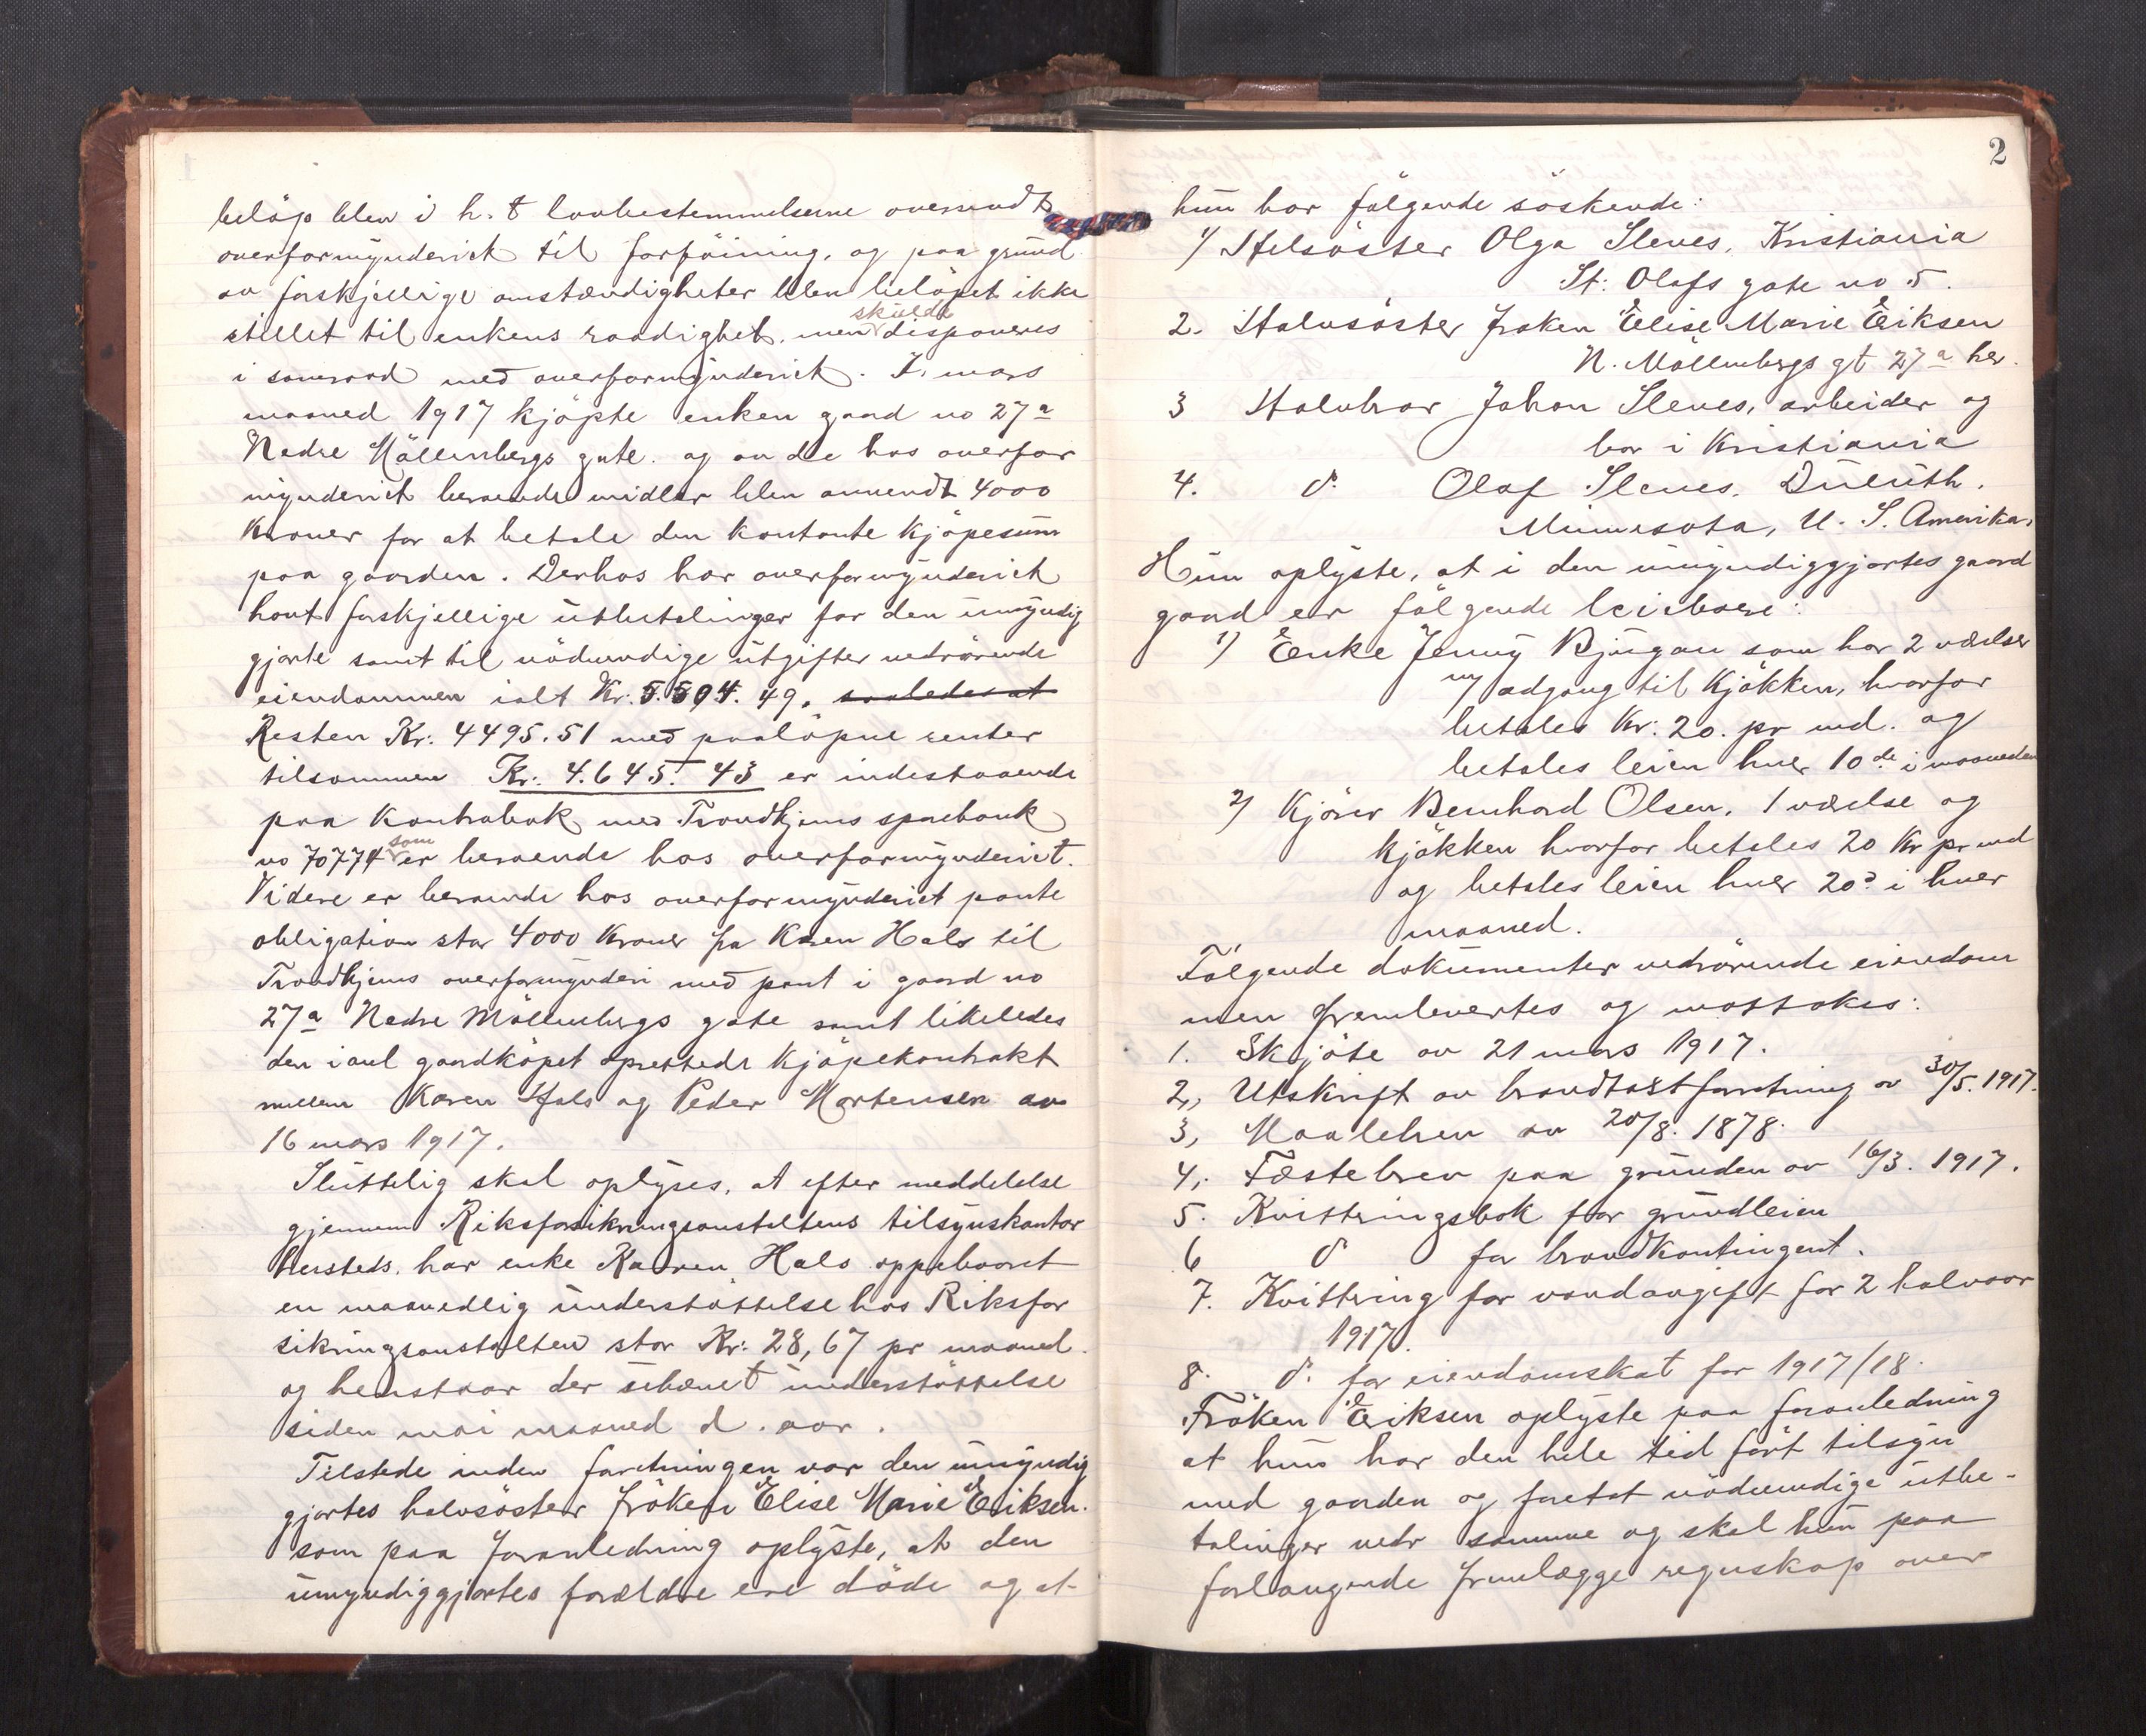 beløp blev i h. t lovbestemmelserne oversendt
overformynderiet til forføining, og paa grund
av forskjellige omstændigheter blev beløpet ikke
stillet til enkens raadighet, men skulde disponeres
i samraad med overformynderiet. I mars
maaned 1917 kjøpte enken gaard no 27a
Nedre Møllenbergs gate. og av de hos overfor
mynderiet beroende midler blev anvendt 4000
Kroner for at betale den kontante kjøpesum
paa gaarden. Derhos har overformynderiet
havt forskjellige utbetalinger for den umyndig
gjorte samt til nødvendige utgifter vedrørende
eiendommen ialt Kr. 5.504.49. saaledes at
Resten Kr: 4495.51 med paaløpne renter
tilsammen Kr: 4.645.43 er indestaaende
paa Kontrabok med Trondhjems sparebank
no 70774 som er beroende hos overformynderiet.
Videre er beroende hos overformynderiet pante
obligation stor 4000 Kroner fra Karen Hals til
Trondhjems overformynderi med pant i gaard no
27a Nedre Møllenbergs gate samt likeledes
den i anl gaardkøpet oprettede Kjøpekontrakt
mellem Karen Hals og Peder Mortensen av
16 mars 1917.
Sluttelig skal oplyses, at efter meddelelse
gjennem Riksforsikringsanstaltens tilsynskontor
hersteds. har enke Karen Hals oppebaaret
en maanedlig understøttelse hos Riksfor
sikringsanstalten stor Kr: 28,67 pr maaned.
og henstaar der uhævet understøttelse
siden mai maaned d. aar.
Tilstede under forretningen var den umyndig
gjortes halvsøster frøken Elise Marie Eriksen.
som paa foranledning oplyste, at den
umyndiggjortes forældre ere døde og at
2
hun har følgende søskende:
1/ Helsøster Olga Stenes, Kristiania
St: Olafs gate no 5.
2. Halvsøster frøken Elise Marie Eriksen
N. Møllenbergs gt 27a her.
3 Halvbror Johan Stenes, arbeider og
bor i Kristiania
4. do Olaf Stenes. Duluth.
Minnesota, U. S. Amerika.
Hun oplyste, at i den umyndiggjortes gaard
gaard er følgende leieboere:
1) Enke Jenny Bjugan som har 2 værelser
m/ adgang til kjøkken, hvorfor
betales Kr: 20. pr md. og
betales leien hver 10de i maaneden
2) Kjører Bernhard Olsen. 1 værelse og
kjøkken hvorfor betales 20 Kr pr md
og betales leien hver 20d i hver
maaned.
Følgende dokumenter vedrørende eiendom
men fremlevertes og mottokes:
1. Skjøte av 21 mars 1917.
2, Utskrift av brandtaxtforretning av 30/5. 1917.
3, Maalebrev av 20/8. 1878.
4, Fæstebrev paa grunden av 16/3. 1917.
5. Kvitteringsbok for grundleien
6 do for brandkontingent.
7. Kvittering for vandavgift for 2 halvaar
1917.
8. do for eiendomskat for 1917/18.
Frøken Eriksen oplyste paa foranledning
at hun har den hele tid ført tilsyn
med gaarden og foretat nødvendige utbe-
talinger vedr samme og skal hun paa
forlangende fremlægge regnskap over